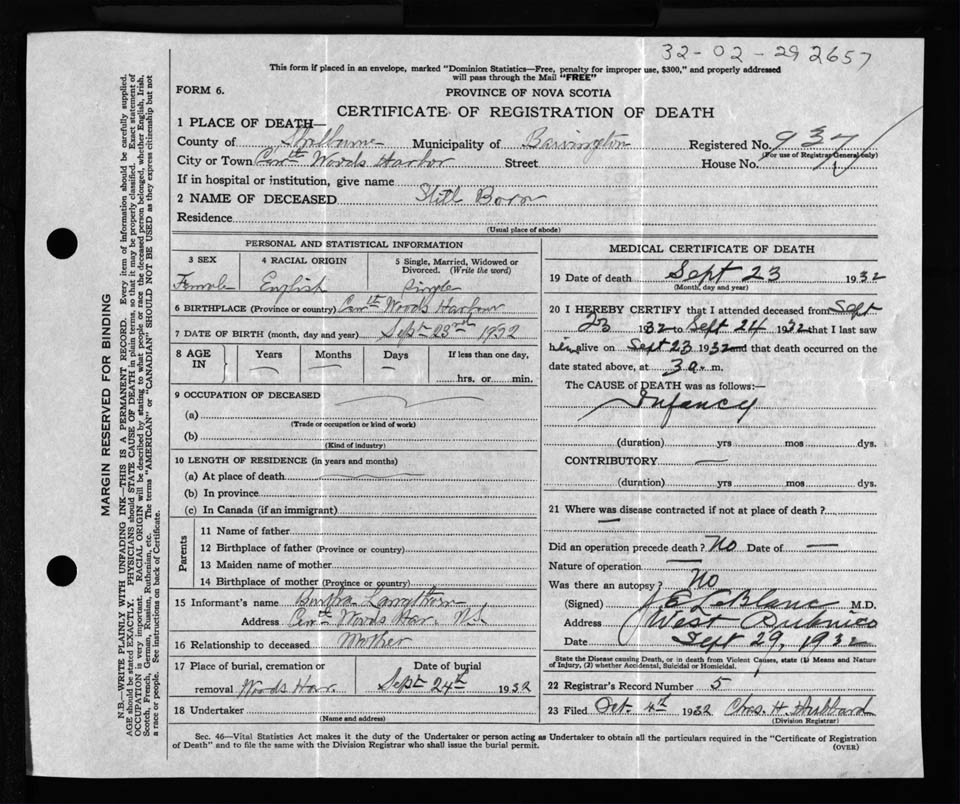 32-02-29 2657
This form if placed in an envelope, marked "Dominion Statistics—Free, penalty for improper use, $300," and properly addressed
will pass through the Mail "FREE"
FORM 6.
PROVINCE OF NOVA SCOTIA
CERTIFICATE OF REGISTRATION OF DEATH
1 PLACE OF DEATH—
County of Shelburne Municipality of Barrington Registered No. 937
(For use of Registrar General only)
City or Town Centre Woods Harbor Street House No.
If in hospital or institution, give name
2 NAME OF DECEASED Still Born
Residence
(Usual place of abode)
MARGIN RESERVED FOR BINDING
N.B.—WRITE PLAINLY WITH UNFADING INK—THIS IS A PERMANENT RECORD. Every item of information should be carefully supplied.
AGE should be stated EXACTLY. PHYSICIANS should STATE CAUSE OF DEATH in plain terms, so that it may be properly classified. Exact statement of
OCCUPATION is very important. RACIAL ORIGIN will be described by stating to what people or race the deceased person belonged, whether English, Irish,
Scotch, French, German, Russian, Ruthenian, etc. The terms "AMERICAN" or "CANADIAN" SHOULD NOT BE USED as they express citizenship but not
a race or people. See instructions on back of Certificate.
PERSONAL AND STATISTICAL INFORMATION
3 SEX
Female
4 RACIAL ORIGIN
English
5 Single, Married, Widowed or
Divorced. (Write the word)
Single
6 BIRTHPLACE (Province or country) Centre Woods Harbour
7 DATE OF BIRTH (month, day and year) Sept 23rd 1932
8 AGE IN
Years
Months
Days
If less than one day,
hrs. or min.
9 OCCUPATION OF DECEASED
(a)
(Trade or occupation or kind of work)
(b)
(Kind of industry)
10 LENGTH OF RESIDENCE (in years and months)
(a) At place of death
(b) In province
(c) In Canada (if an immigrant)
Parents
11 Name of father
12 Birthplace of father (Province or country)
13 Maiden name of mother
14 Birthplace of mother (Province or country)
15 Informant's name Langthorn
Address Centre Woods Har. N.S.
16 Relationship to deceased Mother
17 Place of burial, cremation or
removal Woods Har.
Date of burial
Sept 24th 1932
18 Undertaker
(Name and address)
MEDICAL CERTIFICATE OF DEATH
19 Date of death Sept 23 1932
(Month, day and year)
20 I HEREBY CERTIFY that I attended deceased from Sept
23 1932 to Sept 24 1932 that I last saw
him alive on Sept 23 1932 and that death occurred on the
date stated above, at 3 a. m.
The CAUSE of DEATH was as follows:—
Infancy
(duration) yrs mos dys.
CONTRIBUTORY —
(duration) yrs mos dys.
21 Where was disease contracted if not at place of death?
—
Did an operation precede death? No Date of —
Nature of operation —
Was there an autopsy? No
(Signed) J E LeBlanc M.D.
Address West Pubnico
Date Sept 29, 1932
State the Disease causing Death, or in death from Violent Causes, state (1) Means and Nature
of Injury, (2) whether Accidental, Suicidal or Homicidal.
22 Registrar's Record Number 5
23 Filed Oct. 4th 1932 Chas. H. Hubbard
(Division Registrar)
Sec. 46—Vital Statistics Act makes it the duty of the Undertaker or person acting as Undertaker to obtain all the particulars required in the "Certificate of Registration
of Death" and to file the same with the Division Registrar who shall issue the burial permit.
(OVER)